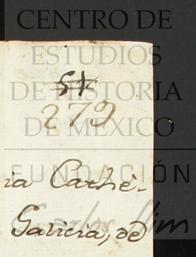 CENTRO DE
ESTUDIOS
DE HISTORIA
DE MEXICO
FUNDACIÓN
Carlos Slim
51
279
ia Cathe-
Galicia, de